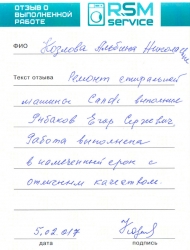 ОТЗЫВ О
ВЫПОЛНЕННОЙ
РАБОТЕ
RSM
service
ФИО Козлова Альбина Николаевна
Текст отзыва Ремонт стиральной
машины Candi выполнил
Рыбаков Егор Сергеевич
Работа выполнена
в намеченный срок с
отличным качеством.
5.02.017
дата подпись